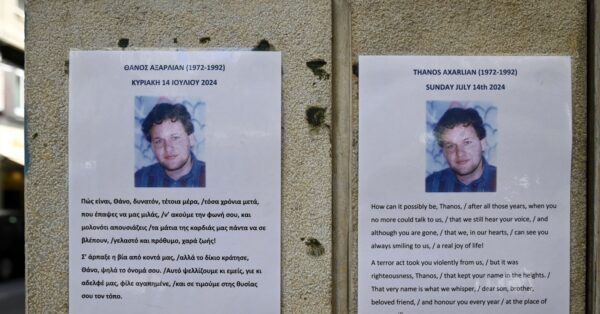 ΘΑΝΟΣ ΑΞΑΡΛΙΑΝ (1972-1992)
ΚΥΡΙΑΚΗ 14 ΙΟΥΛΙΟΥ 2024
Πώς είναι, Θάνο, δυνατόν, τέτοια μέρα, /τόσα χρόνια μετά,
που έπαψες να μας μιλάς, /ν' ακούμε την φωνή σου, και
μολονότι απουσιάζεις /τα μάτια της καρδιάς μας πάντα να σε
βλέπουν, /γελαστό και πρόθυμο, χαρά ζωής!
Σ' άρπαξε η βία από κοντά μας, /αλλά το δίκιο κράτησε,
Θάνο, ψηλά το όνομά σου. /Αυτό ψελλίζουμε κι εμείς, γιε κι
αδελφέ μας, φίλε αγαπημένε, /και σε τιμούμε στης θυσίας
σου τον τόπο.
THANOS AXARLIAN (1972-1992)
SUNDAY JULY 14th 2024
How can it possibly be, Thanos, / after all those years, when you
no more could talk to us, / that we still hear your voice, / and
although you are gone, / that we, in our hearts, / can see you
always smiling to us, / a real joy of life!
A terror act took you violently from us, / but it was
righteousness, Thanos, / that kept your name in the heights. /
That very name is what we whisper, / dear son, brother,
beloved friend, / and honour you every year / at the place of